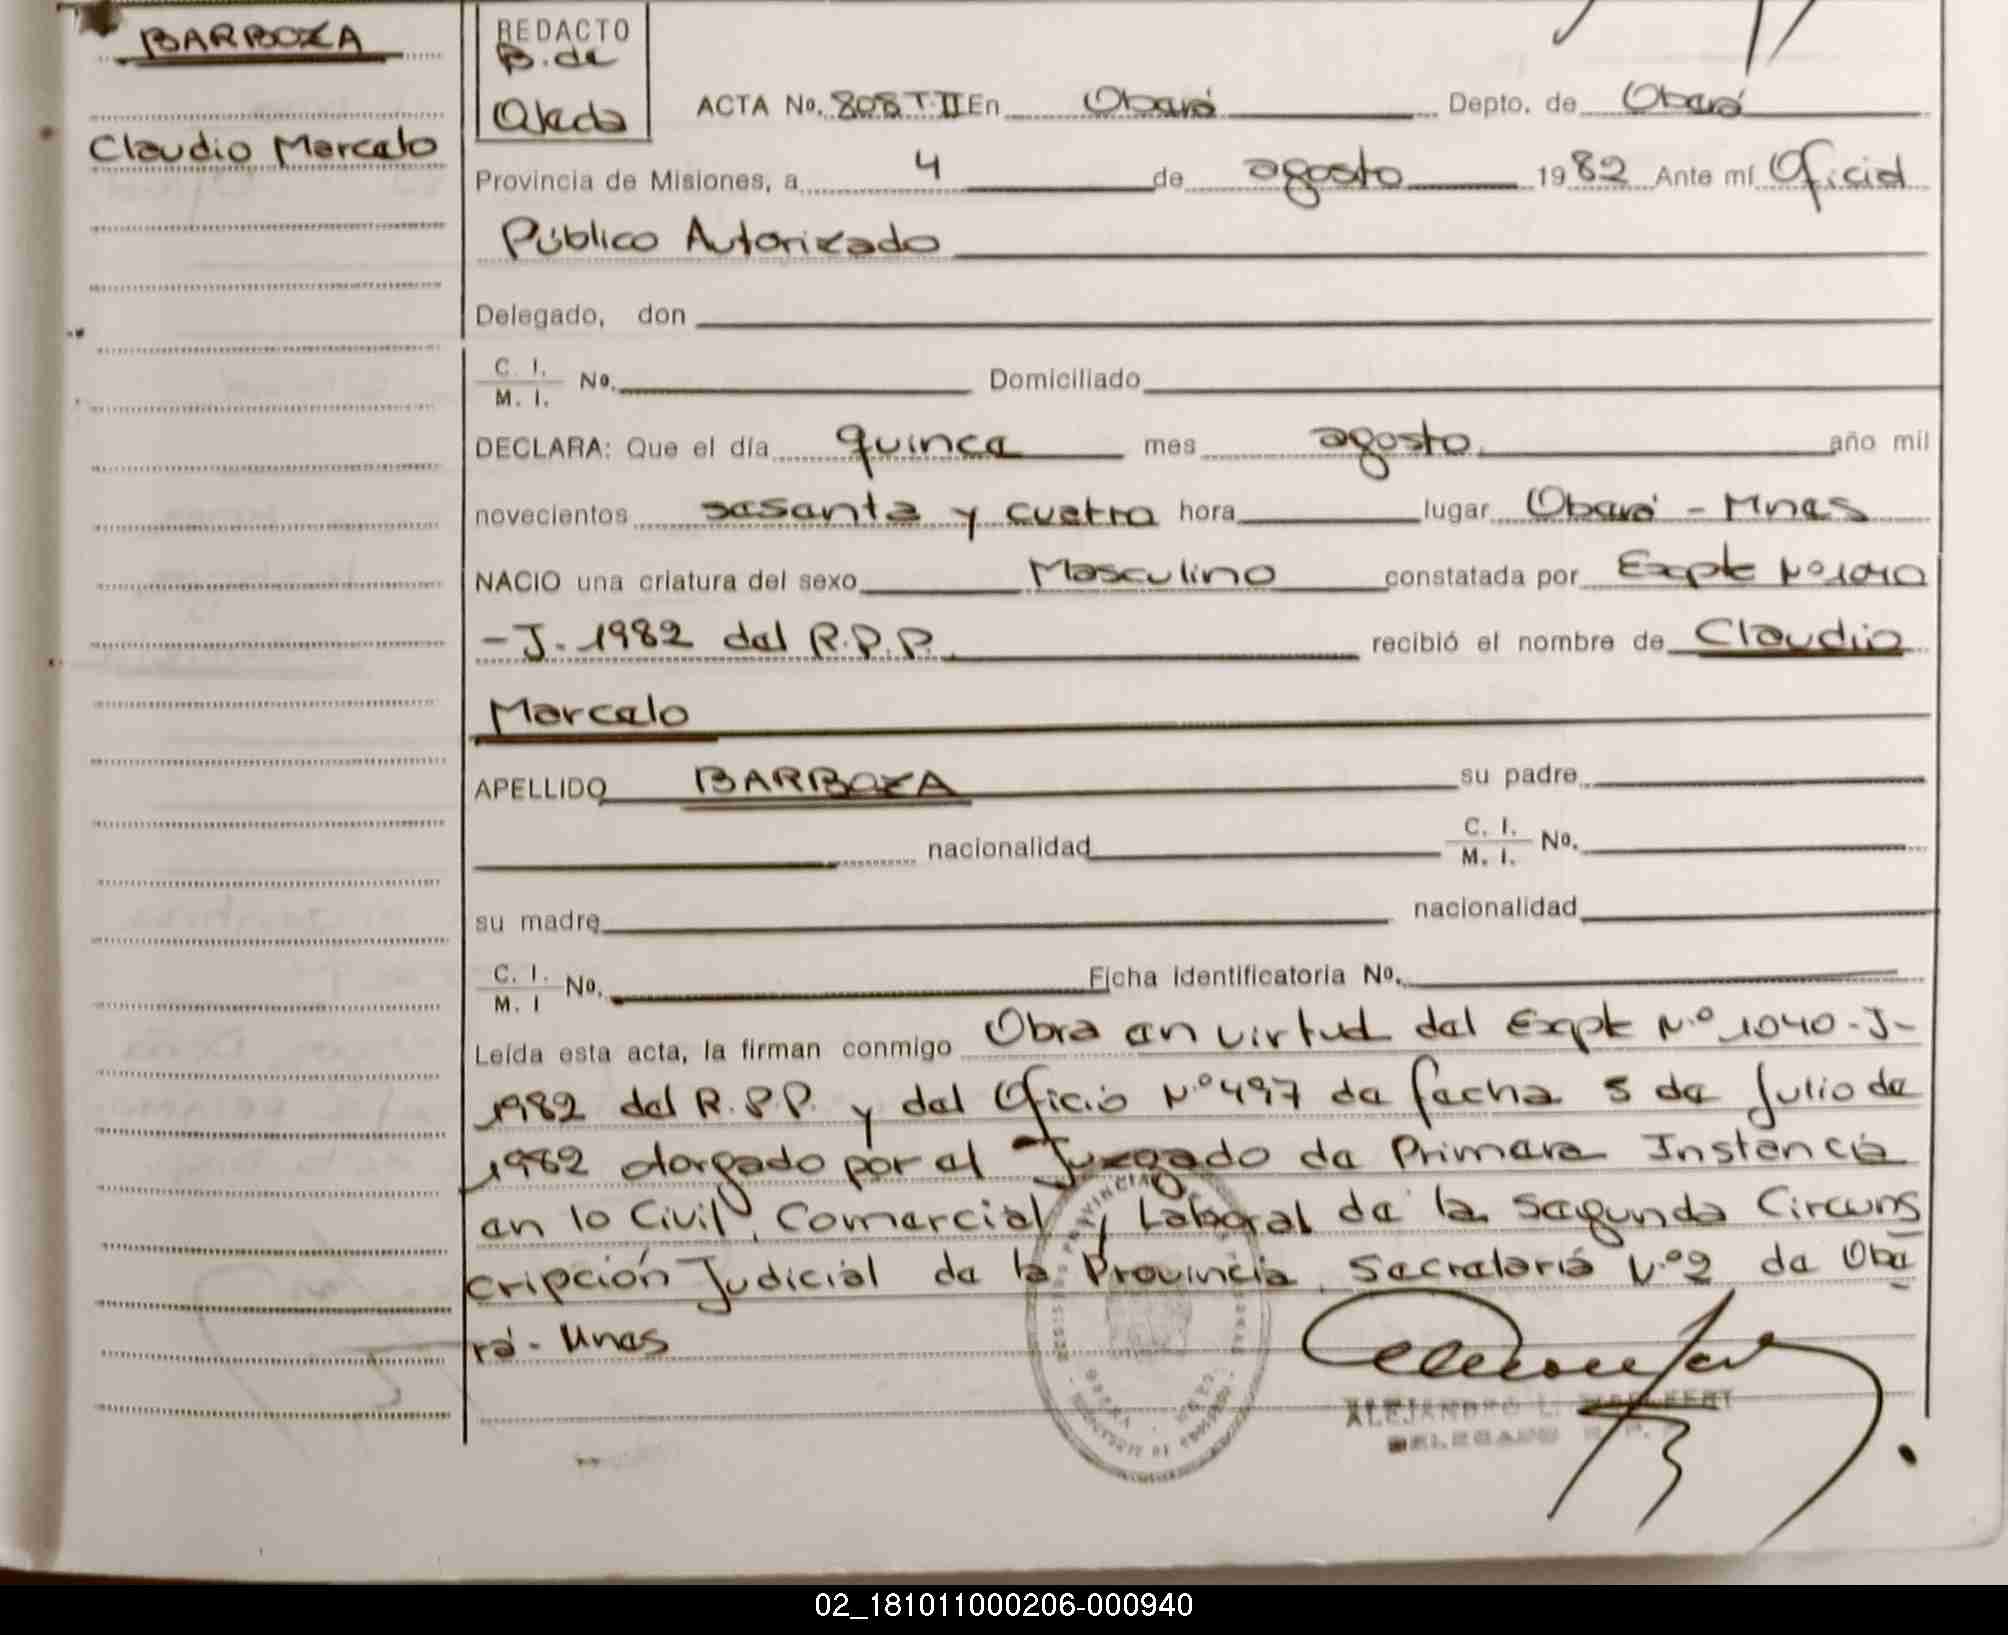 BARBOZA
Claudio Marcelo
REDACTO
B. de
Ojeda
ACTA No. 808 T·II En Oberá Depto. de Oberá
Provincia de Misiones, a 4 de agosto 1982 Ante mí Oficial
Público Autorizado
Delegado, don
C. I. M. I. No. Domiciliado
DECLARA: Que el día quince mes agosto año mil
novecientos sesenta y cuatro hora lugar Oberá - Mnes
NACIO una criatura del sexo Masculino constatada por Expte Nº 1040
- J - 1982 del R.P.P. recibió el nombre de Claudio
Marcelo
APELLIDO BARBOZA su padre
nacionalidad C. I. M. I. No.
su madre nacionalidad
C. I. M. I No. Ficha identificatoria No.
Leída esta acta, la firman conmigo Obra en virtud del Expte N.º 1040 - J -
1982 del R.P.P. y del Oficio Nº 497 de fecha 5 de Julio de
1982 otorgado por el Juzgado de Primera Instancia
en lo Civil, Comercial y Laboral de la Segunda Circuns
cripción Judicial de la Provincia, Secretaría N.º 2 de Obe
rá - Mnes
ALEJANDRO L.
DELEGADO R. P.
02_181011000206-000940